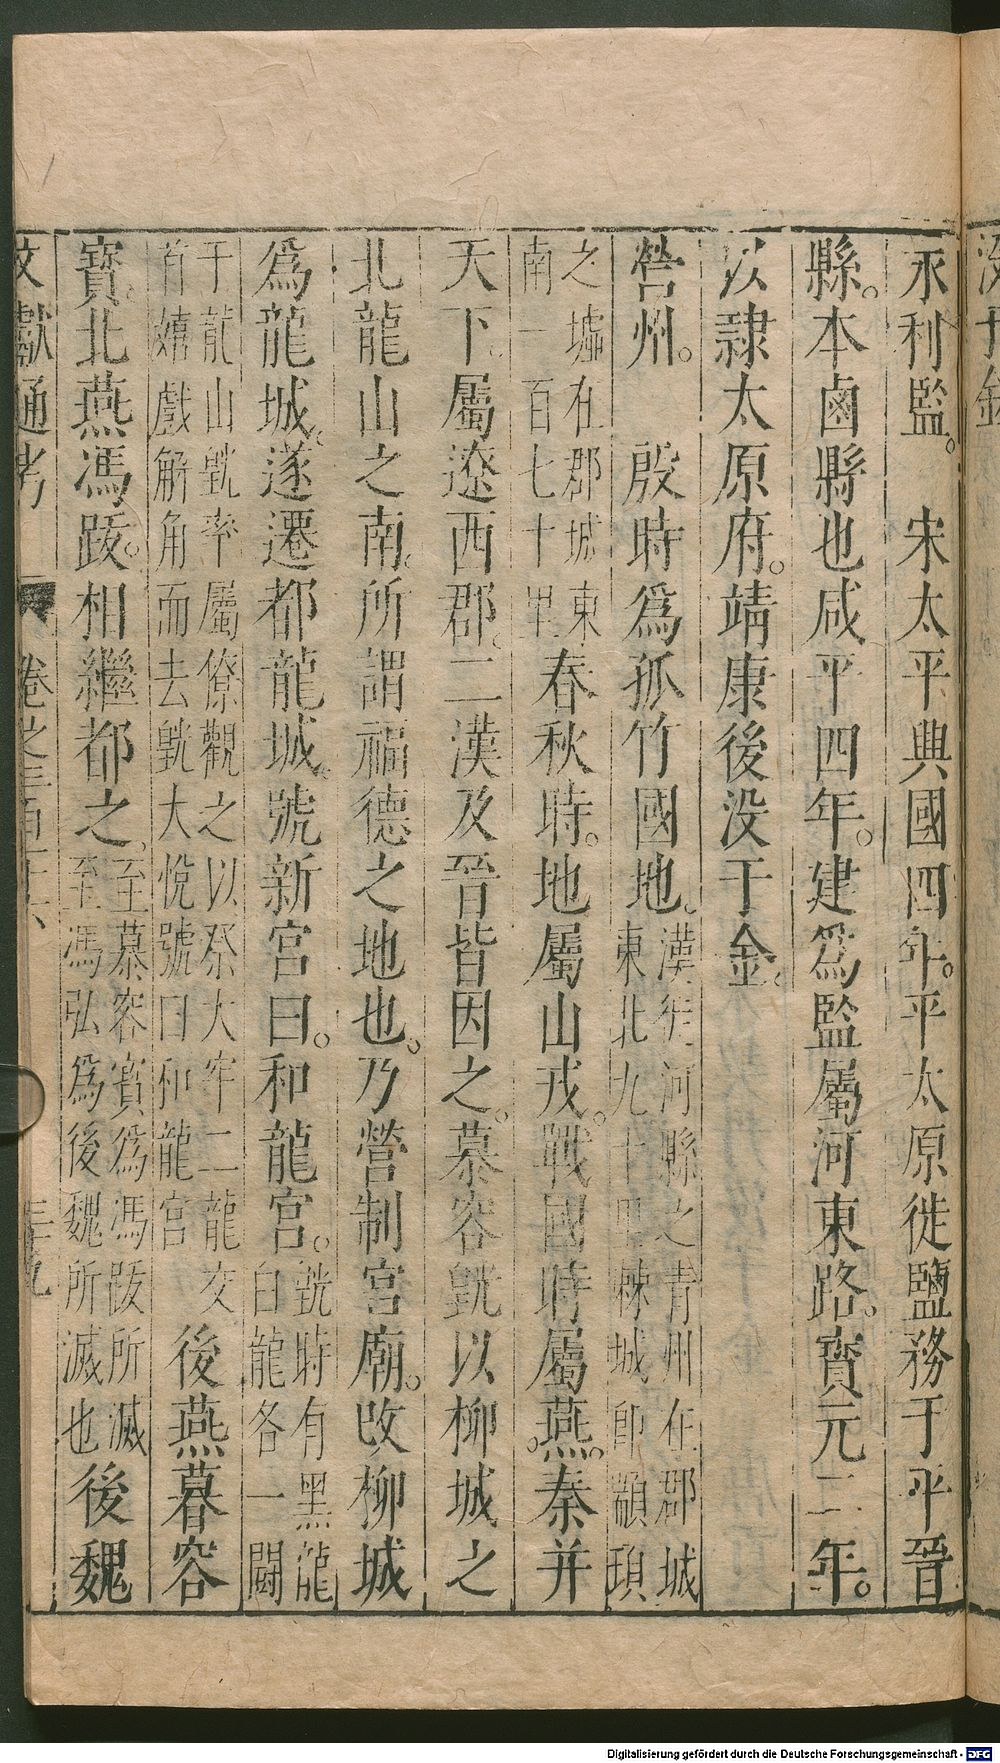 永利監。宋太平興國四年。平太原徙鹽務于平晉
縣。本鹵縣也咸平四年。建爲監屬河東路。寳元二年。
以隷太原府。靖康後没于金。
營州。殷時爲孤竹國地。漢徒河縣之青州在郡城
東北九十里棘城卽顓頊
之墟在郡城東
南一百七十里春秋時。地屬山戎。戰國時屬燕。秦并
天下。屬遼西郡。二漢及晉皆因之。慕容皝以柳城之
北龍山之南。所謂福德之地也。乃營制宮廟。改柳城
爲龍城。遂遷都龍城。號新宮曰。和龍宮。皝時有黑龍
白龍各一鬬
于龍山皝率屬僚觀之以祭大牢二龍交
首嬉戲解角而去皝大悅號曰和龍宮後燕暮容
寶。北燕馮跋。相繼都之。至慕容寳爲馮跋所滅
至馮弘爲後魏所滅也後魏
文獻通考 卷之三百十六 三十九
Digitalisierung gefördert durch die Deutsche Forschungsgemeinschaft - DFG